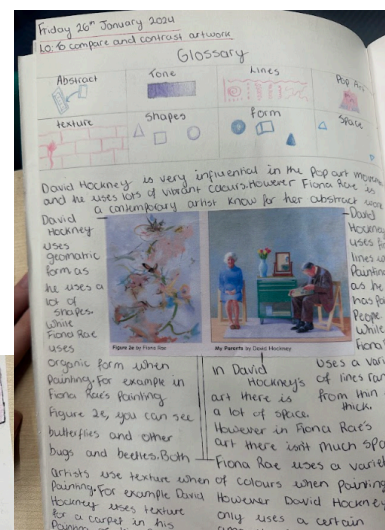 Friday 26th January 2024
LO: to compare and contrast artwork
Glossary
Abstract
Tone
Lines
Pop Art
texture
Shapes
form
Space
David Hockney is very influential in the Pop art
and he uses lots of vibrant However Fiona Rae is
a contemporary artist know for her abstract work
David
Hockney
uses
geomatric
form as
he uses a
lot of
shapes.
While
Fiona Rae
uses
organic form when
Painting. For example in
Fiona Rae's Painting
Figure 2e, you can see
butterflies and other
bugs and beetles. Both
artists use texture when
Painting. For example David
Hockney uses texture
for a carpet in his
Figure 2e by Fiona Rae
My Parents by David Hockney
In David
Hockney's
art there is
a lot of space.
However in Fiona Rae's
art there isn't much
David
Hockney
uses
lines
Painting
as he
has
People.
While
Fiona
uses a
of lines
from thin
thick.
Fiona Rae uses a
of colours when
However David
only uses a certain